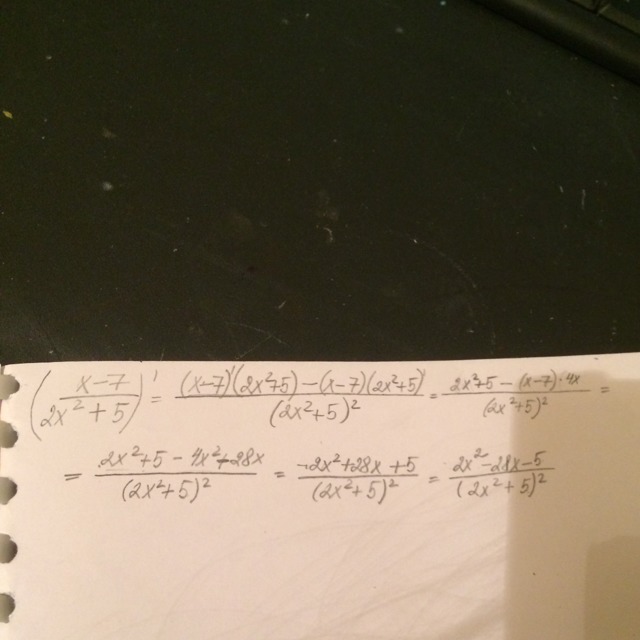 (x-7 / 2x²+5)' = (x-7)'(2x²+5)-(x-7)(2x²+5)' / (2x²+5)² = 2x²+5-(x-7)·4x / (2x²+5)² =
= 2x²+5-4x²+28x / (2x²+5)² = -2x²+28x+5 / (2x²+5)² = 2x²-28x-5 / (2x²+5)²